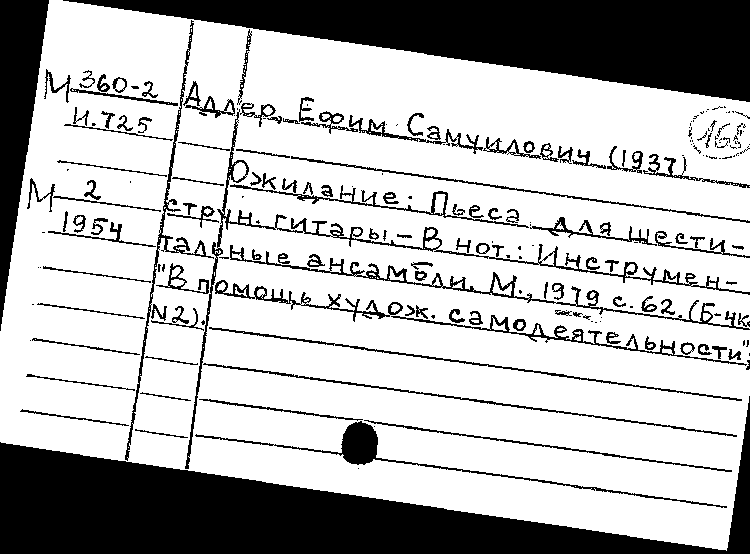 М 360-2 Адлер, Ефим Самуилович (1937)
И.725
168
Ожидание: Пьеса для шести-
М 2 струн. гитары. – В нот.: Инструмен-
1954 тальные ансамбли. М., 1979, с. 62. (Б-чк
"В помощь худож. самодеятельности",
N2).